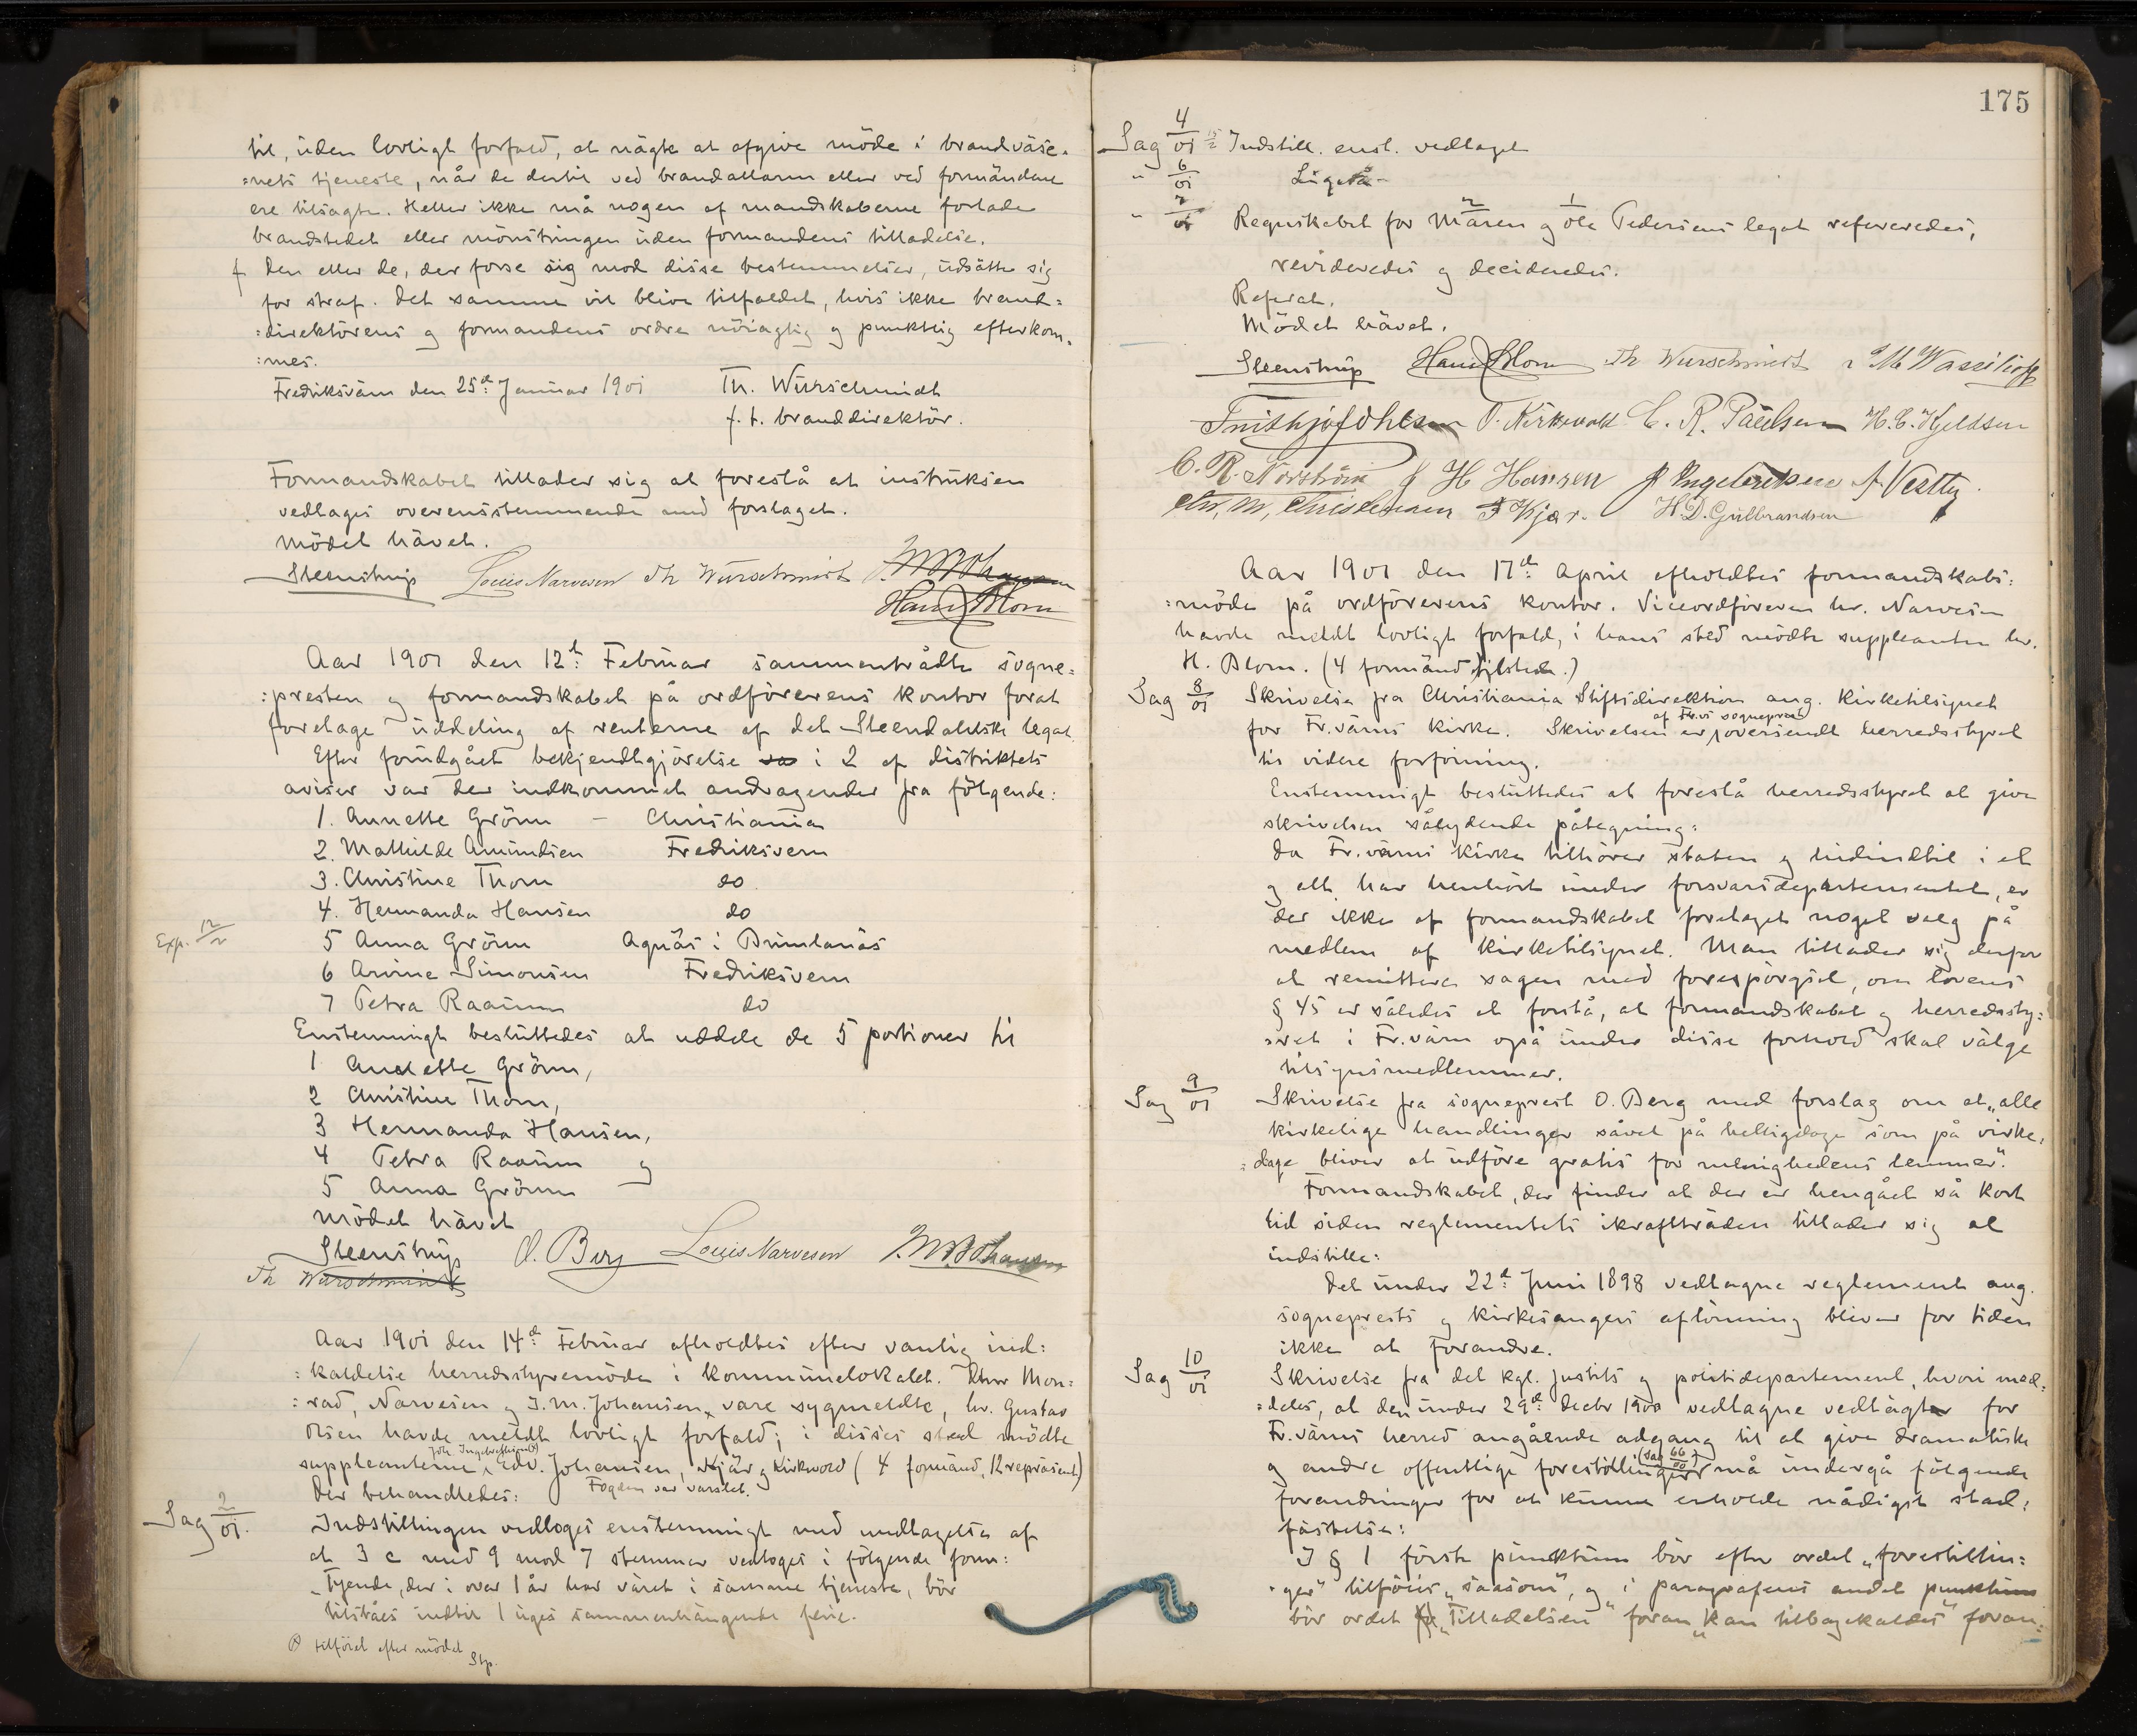 til, uden lovligt forfald, at nägte at afgive möde i brandväse-
:nets tjeneste, når de dertil ved brandallarm eller ved formändene
ere tilsagte. Heller ikke må nogen af mandskaberne forlade
brandstedet eller mönstringen uden formandens tilladelse.
Den eller de, der forse sig mod disse bestemmelser, udsätte sig
for straf. Det samme vil blive tilfældet, hvis ikke brand:
:direktörens og formandens ordre nöiagtig og punktlig efterkom-
:mes.
Fredriksvärn den 25de Januar 1901 Th. Würschmidt
f. t. branddirektör.
Formandskabet tillader sig at foreslå at instruksen
vedtages overensstemmende med forslaget.
Mödet hävet.
Steenstrup Louis Narvesen Th Würschmidt J. M. Johansen
Hans Blom
Aar 1901 den 12te Februar sammentrådte sogne:
:presten og formandskabet på ordförerens kontor forat
foretage uddeling af renterne af det Steendahlske legat.
Efter forudgået bekjendtgjörelse i 2 af distriktets
aviser var der indkommet andragender fra fölgende:
1. Annette Grönn – Christiania
2. Mathilde Amundsen Fredriksvern
3. Christine Thorn do
4. Hermanda Hansen do
Exp. 12/2
5 Anna Grönn Agnäs i Brunlanäs
6 Arvine Simonsen Fredriksvern
7 Petra Raaum do
Enstemmigt besluttedes at uddele de 5 portioner til
1 Annette Grönn,
2 Christine Thorn,
3 Hermanda Hansen,
4 Petra Raaum og
5 Anna Grönn
Mödet hävet
Steenstrup O. Berg Louis Narvesen J. M. Johansen
Th Würschmidt
Aar 1901 den 14de Februar afholdtes efter vanlig ind:
:kaldelse herredsstyremöde i kommunelokalet. Dhrr Mon:
:rad, Narvesen og J. M. Johansen, vare sygmeldte, hr. Gustav
Olsen havde meldt lovligt forfald; i disses sted mödte
Joh. Ingebrethsen
suppleanterne, Edv. Johansen, Kjär og Kirkwold (4 formänd, 12 repräsent.)
Der behandledes: Fogden var varslet.
Sag 2/01. Indstillingen vedtoges enstemmigt med undtagelse af
at 3 c med 9 mod 7 stemmer vedtoges i fölgende form:
„Tyende, der i over 1 år har väret i samme tjeneste, bör
tilståes indtil 1 uges sammenhängende ferie.
tilföiet efter mödet
Stp.
175
Sag 4/01 Indstill. enst. vedtaget
" 6/01 Ligeså
" 7/01 Regnskabet for Maren og Ole Pedersens legat refereredes,
revideredes og decideredes.
Referat.
Mödet hävet.
Steenstrup Hans Blom Th Würschmidt M Wassilioff
Frithjof Ohlsen O. Kirkwold C. R. Paulsen H. C. Kjeldsen
C. R. Norström J H Hansen J Ingebretsen A Vestby.
Chr. M. Christensen J Kjær. H. D. Gulbrandsen
Aar 1901 den 17de April afholdtes formandskabs:
:möde på ordförerens kontor. Viceordföreren hr. Narvesen
havde meldt lovligt forfald, i hans sted mödte suppleanten hr.
H. Blom. (4 formänd tilstede.)
Sag 8/01 Skrivelse fra Christiania Stiftsdirektion ang. Kirketilsynet
af Fr.v.s sogneprest
for Fr.värns kirke. Skrivelsen er oversendt herredsstyret
til videre forföining.
Enstemmigt besluttedes at foreslå herredsstyret at give
skrivelsen sålydende påtegning:
Da Fr.värns Kirke tilhörer staten og hidindtil i et
og alt har henhört under forsvarsdepartementet, er
der ikke af formandskabet foretaget noget valg på
medlem af Kirketilsynet. Man tillader sig derfor
at remittere sagen med forespörgsel, om lovens
§ 45 er således at forstå, at formandskabet og herredssty:
:ret i Fr.värn også under disse forhold skal välge
tilsynsmedlemmer.
Sag 9/01 Skrivelse fra sogneprest O. Berg med forslag om at „alle
kirkelige handlinger såvel på helligdage som på virke:
:dage bliver at udföre gratis for menighedens lemmer".
Formandskabet, der finder at der er hengået så kort
tid siden reglementets ikrafttråden tillader sig at
indstille:
Det under 22de Juni 1898 vedtagne reglement ang.
sogneprests og kirkesangers aflönning bliver for tiden
ikke at forandre.
Sag 10/01 Skrivelse fra det kgl. justits og politidepartement, hvori med:
:deles, at den under 29de decbr 1900 vedtagne vedtägt for
Fr.värns herred angående adgang til at give dramatiske
(Sag 66/00)
og andre offentlige forestillinger må undergå fölgende
forandringer for at kunne erholde nådigst stad:
fästelse:
I § 1 förste punktum bör efter ordet „forestillin:
:ger" tilföies „såsom", og i paragrafens andet punktum
bör ordet „Tilladelsen" foran „kan tilbagekaldes" foran: